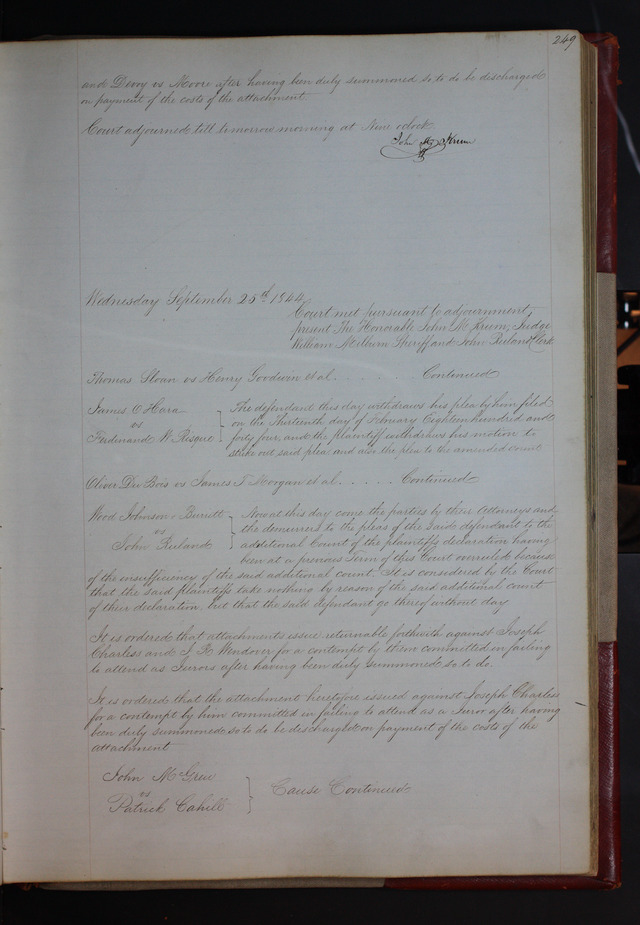 249
and Devoy vs Moore after having been duly summoned so to do be discharged
on payment of the costs of the attachment.
Court adjourned till tomorrow morning at Nine oClock
John M. Krum
Wednesday September 25th 1844
Court met pursuant to adjournment,
present The Honorable John M. Krum, Judge
William Milburn Sheriff and John Ruland Clerk
Thomas Sloan vs Henry Goodwin et al. . . . . . . Continued
James O'Hara
vs
Ferdinand W. Risque
The defendant this day withdraws his plea by him filed
on the Thirteenth day of February Eighteen hundred and
forty four, and the plaintiff withdraws his motion to
strike out said plea, and also the plea to the amended count
Oliver Du Bois vs James S. Morgan et al. . . . . Continued
Wood Johnson & Burritt
vs
John Ruland
Now at this day come the parties by their Attorneys and
the demurrers to the pleas of the said defendant to the
additional Count of the plaintiffs declaration having
been at a previous Term of this Court overruled because
of the insufficiency of the said additional count. It is considered by the Court
that the said plaintiffs take nothing by reason of the said additional count
of their declaration, but that the said defendant go thereof without day
It is ordered that attachments issue returnable forthwith against Joseph
Charless and J. R. Wendover for a contempt by them committed in failing
to attend as Jurors after having been duly summoned so to do.
It is ordered that the attachment heretofore issued against Joseph Charless
for a contempt by him committed in failing to attend as a Juror after having
been duly summoned so to do be discharged on payment of the costs of the
attachment
John McGrew
vs
Patrick Cahill
Cause Continued